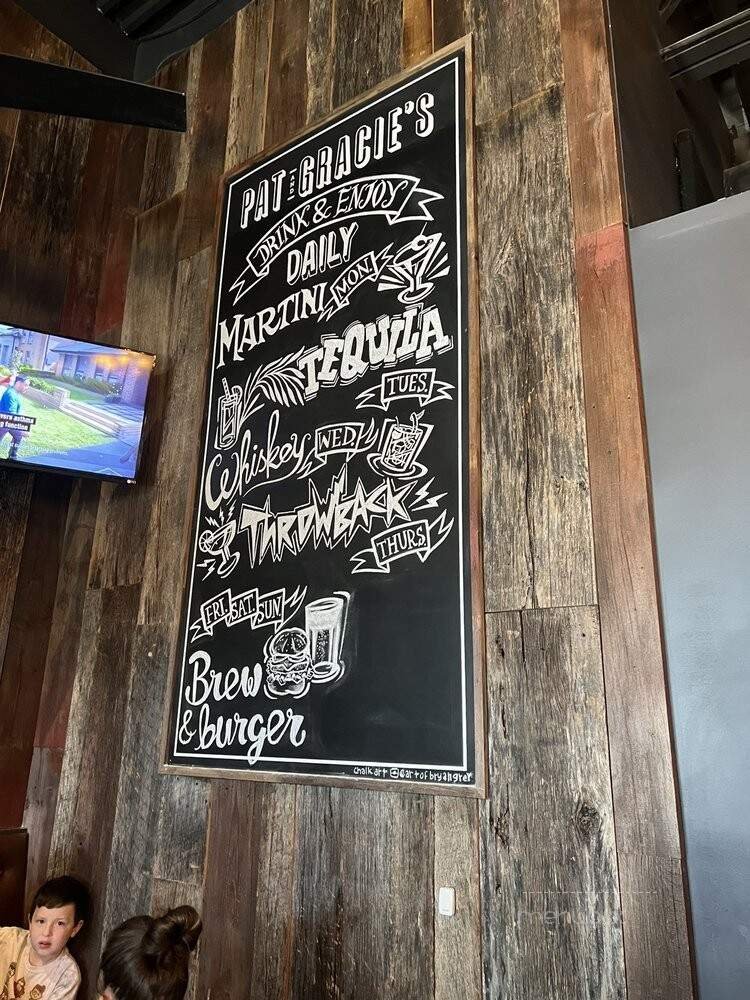 PAT AND GRACIE'S
DRINK & ENJOY
DAILY
MARTINI MON.
TEQUILA
TUES.
Whiskey WED.
THROWBACK
THURS.
FRI. SAT. SUN.
Brew
& burger
chalk art @artofbryangrey
vere asthma
g function
LG